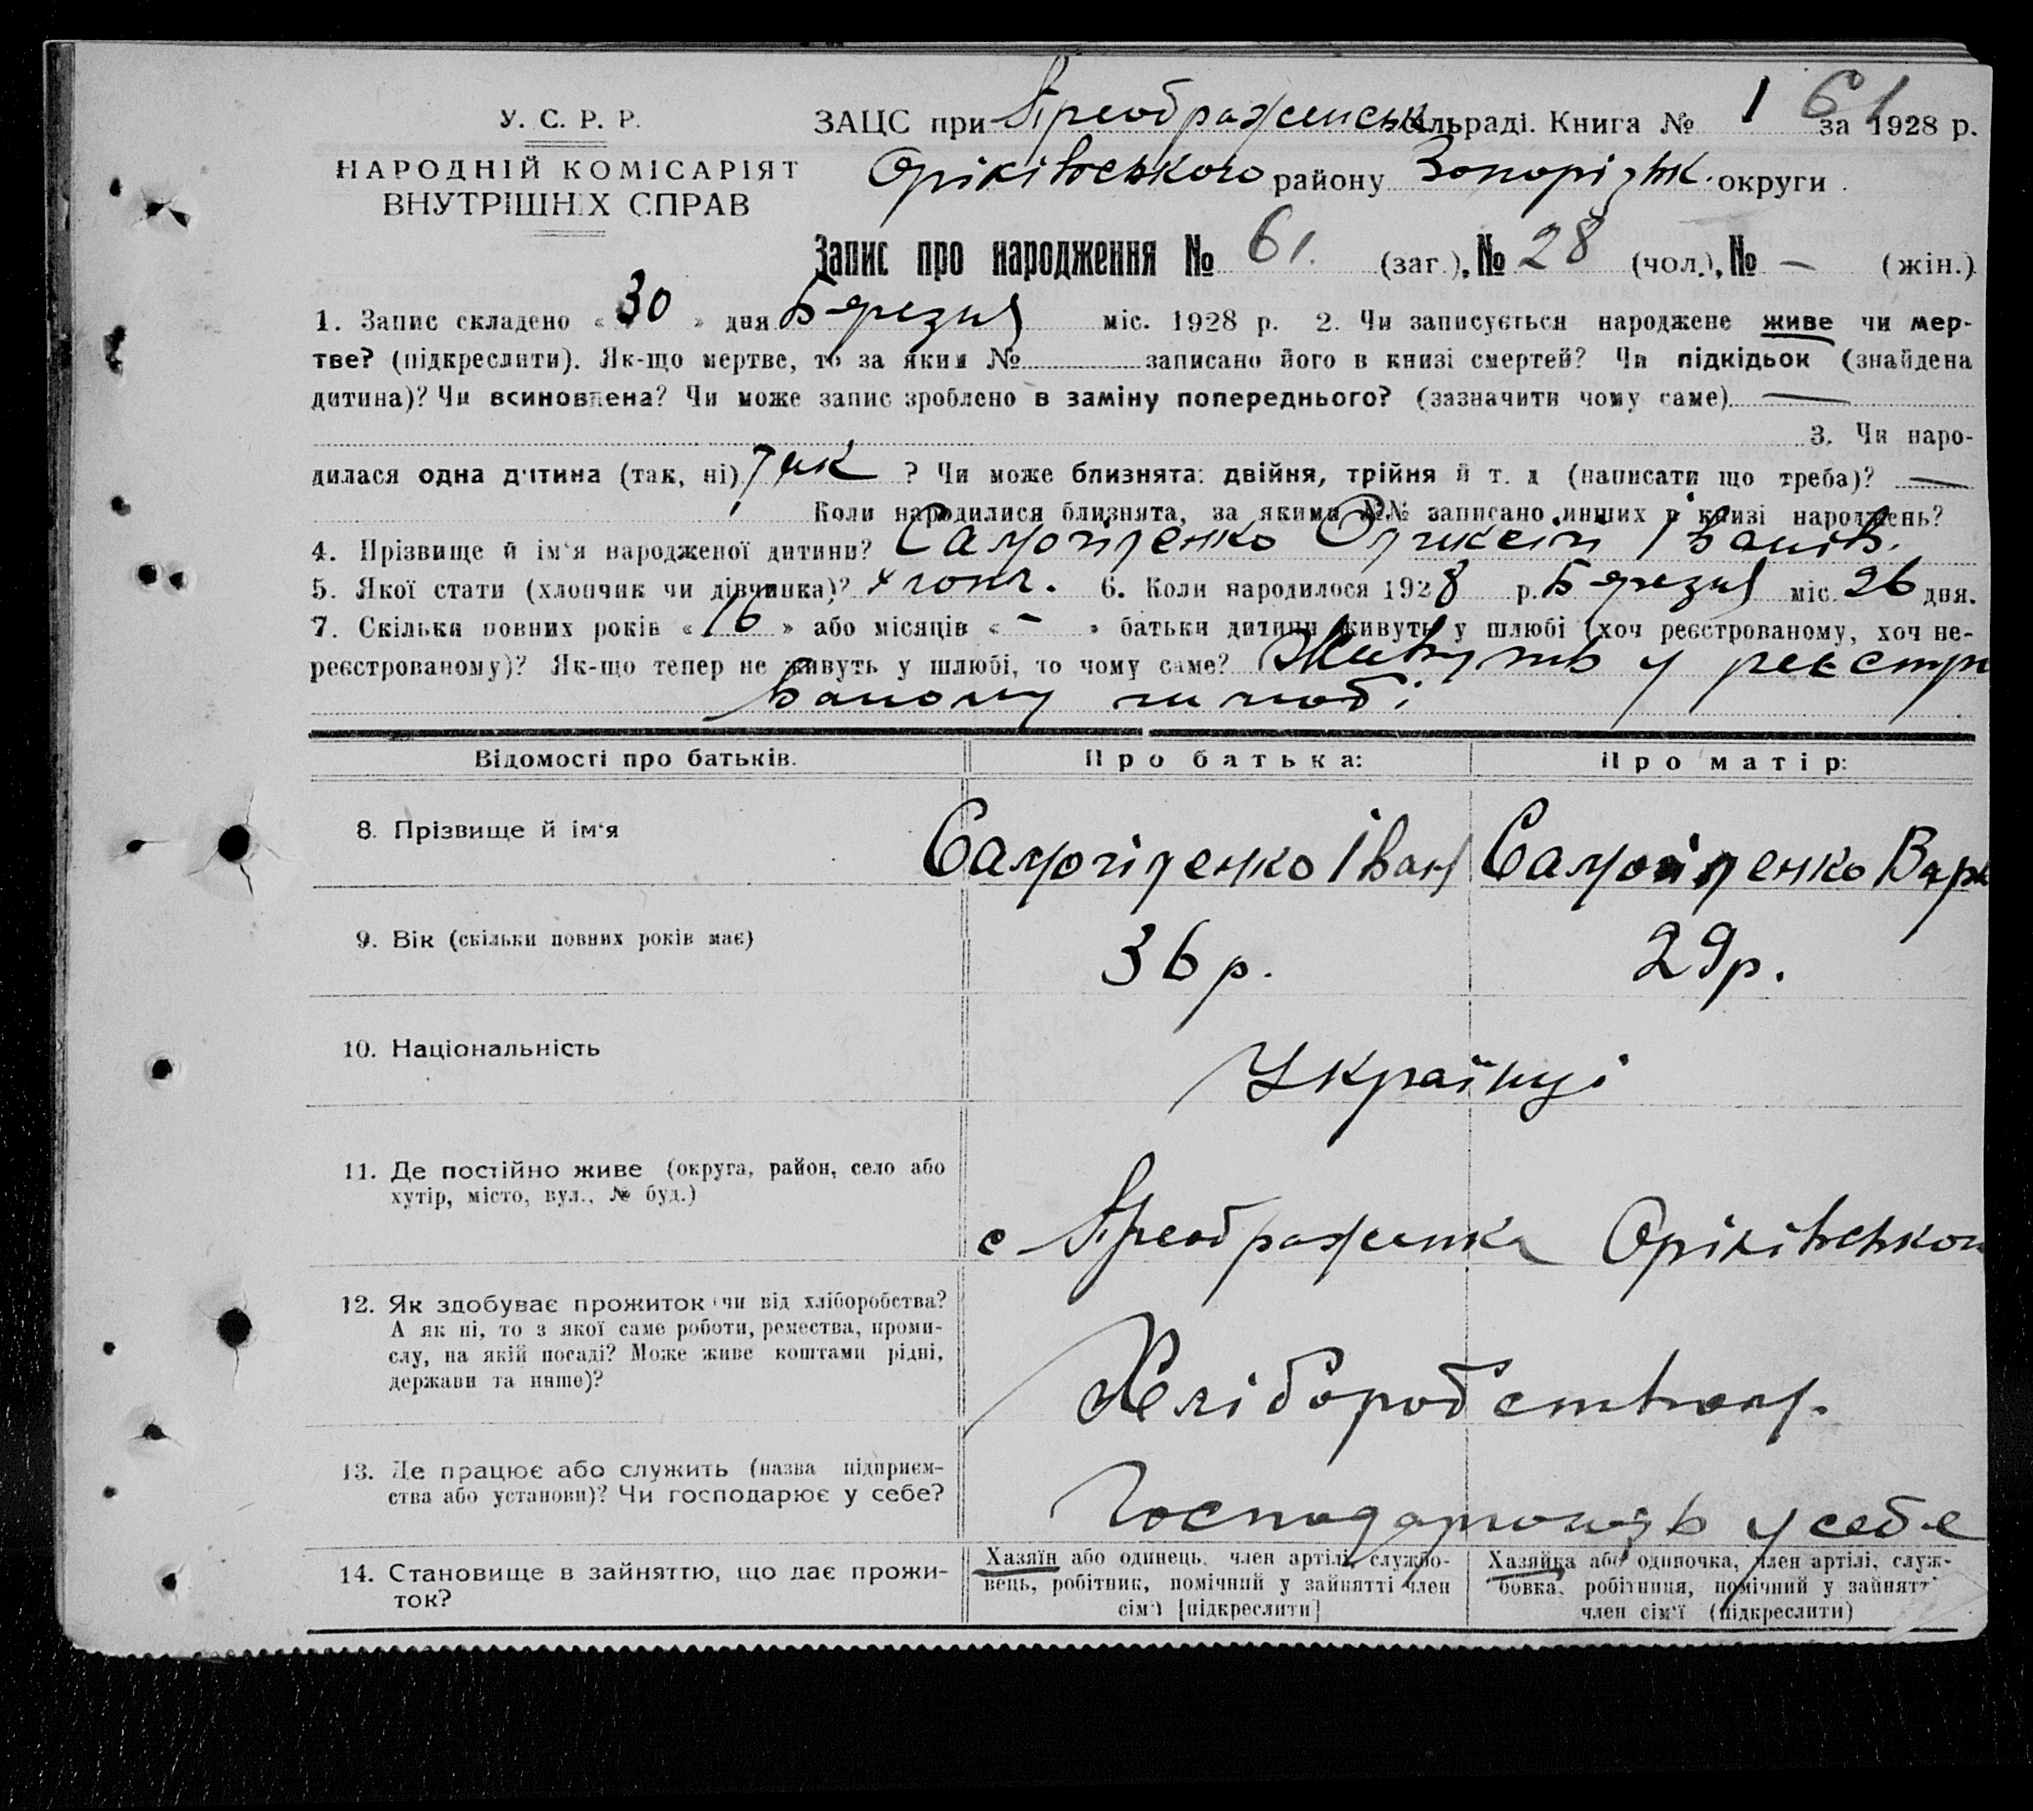 У. С. Р. Р.
НАРОДНІЙ КОМІСАРІЯТ
ВНУТРІШНІХ СПРАВ
ЗАЦС при Преображенськ сільраді. Книга № 1 за 1928 р.
61
Оріхівського району Запоріжж. округи.
Запис про народження № 61. (заг.), № 28 (чол.), № — (жін.)
1. Запис складено « 30 » дня Березня міс. 1928 р. 2. Чи записується народжене живе чи мер-
тве? (підкреслити). Як-що мертве, то за яким № записано його в книзі смертей? Чи підкідьок (знайдена
дитина)? Чи всиновлена? Чи може запис зроблено в заміну попереднього? (зазначити чому саме) —
3. Чи наро-
дилася одна дитина (так, ні) Так ? Чи може близнята: двійня, трійня й т. д (написати що треба)? —
Коли народилися близнята, за якими №№ записано инших в книзі народжень?
4. Прізвище й ім'я народженої дитини? Самойленко Іванів.
5. Якої стати (хлопчик чи дівчинка)? хлопч. 6. Коли народилося 1928 р. Березня міс. 26 дня.
7. Скільки повних років « 16 » або місяців « - » батьки дитини живуть у шлюбі (хоч реєстрованому, хоч не-
реєстрованому)? Як-що тепер не живуть у шлюбі, то чому саме? Живуть у реєстро
ваному шлюбі
Відомості про батьків. Про батька: Про матір:
8. Прізвище й ім'я Самойленко Іван Самойленко Варв
9. Вік (скільки повних років має) 36 р. 29 р.
10. Національність Українці
11. Де постійно живе (округа, район, село або
хутір, місто, вул., № буд.) с Преображенка Оріхівськог
12. Як здобуває прожиток (чи від хліборобства?
А як ні, то з якої саме роботи, ремества, проми-
слу, на якій посаді? Може живе коштами рідні,
держави та инше)? Хліборобством.
13. Де працює або служить (назва підприєм-
ства або установи)? Чи господарює у себе? Господарюють у себе
14. Становище в зайняттю, що дає прожи-
ток?
Хазяїн або одинець, член артілі, службо-
вець, робітник, помічний у зайнятті член
сім'ї [підкреслити]
Хазяйка або одиночка, член артілі, служ-
бовка, робітниця, помічний у зайнятт
член сім'ї (підкреслити)